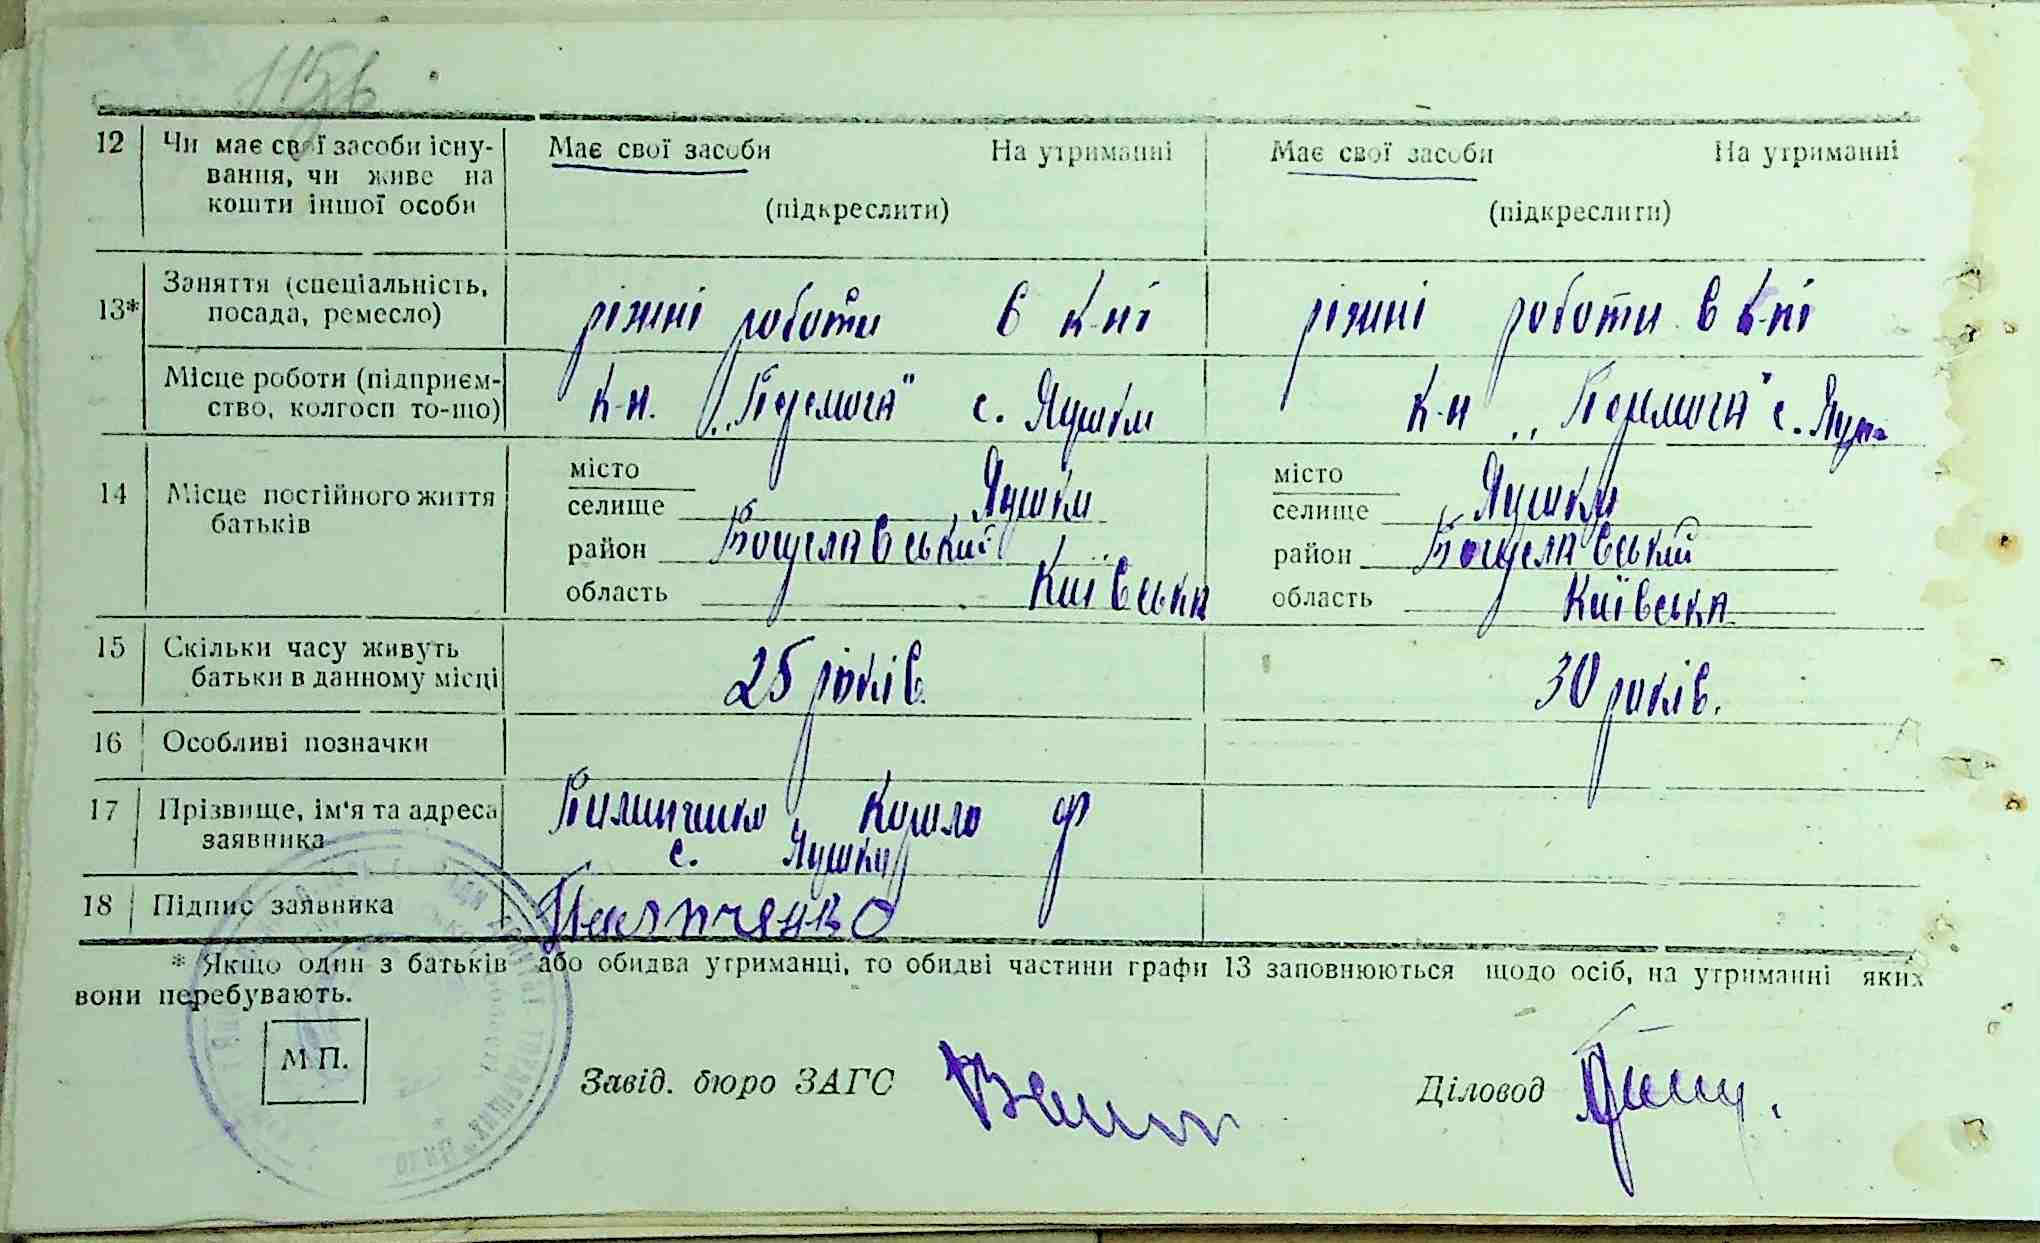 12 Чи має свої засоби існу- Має свої засоби На утриманні Має свої засоби На утриманні
вання, чи живе на
кошти іншої особи (підкреслити) (підкреслити)
13* Заняття (спеціальність,
посада, ремесло) ріжні роботи в к-пі ріжні роботи в к-пі
Місце роботи (підприєм-
ство, колгосп то-що) к-п. „Перемога" с. Яушки к-п „Перемога" с.
місто місто
14 Місце постійного життя селище Яушки селище Яушки
батьків район Богуславський район Богуславський
область Київська область Київська
15 Скільки часу живуть
батьки в данному місці 25 років. 30 років.
16 Особливі позначки
17 Прізвище, ім'я та адреса
заявника Ф
с. Яушки
18 Підпис заявника
* Якщо один з батьків або обидва утриманці, то обидві частини графи 13 заповнюються щодо осіб, на утриманні яких
вони перебувають.
М.П.
Завід. бюро ЗАГС Діловод